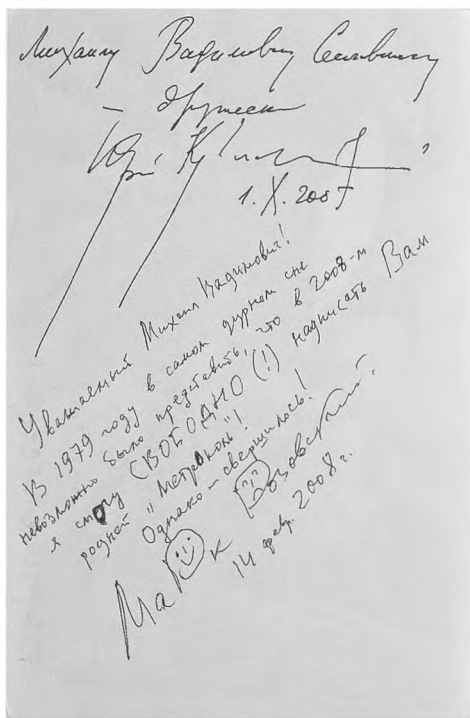 Михаилу Вадимовичу
– дружески
Юрий
1. X. 2007
Уважаемый Михаил Вадимович!
В 1979 году в самом дурном сне
невозможно было представить, что в 2008-м
я смогу СВОБОДНО (!) надписать Вам
родной "Метрополь"!
Однако – свершилось!
Марк Розовский.
14 февр. 2008 г.